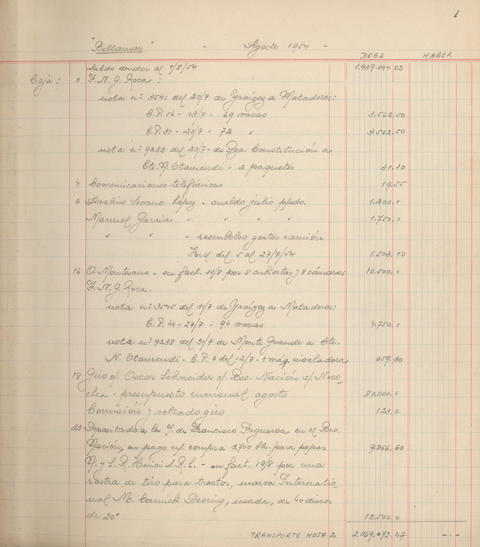 1
"Bellamar" - Agosto 1954 -
DEBE HABER
Saldo deudor al 1/8/54 1.939.044.82
Caja: 2 F.N.G. Roca:
nota nº 3541 del 20/7 de Graizoz a Mataderos:
C.P. 16 - 13/7 - 69 vacas 3.562.50
C.P. 31 - 20/7 - 72 " 3.562.50
nota nº 9233 del 20/7 de Pza. Constitución a
Cte. N. Otamendi - 2 paquetes 21.10
4 Comunicaciones telefónicas 19.55
6 Seoane López - sueldo julio ppdo. 1.400.=
Manuel García " " " " 1.750.=
" " - reembolso gastos camión
Ford del 5 al 27/7/54 1.508.10
16 O. Montesano - su fact. 14/8 por 8 cubiertas y 8 cámaras 10.500.=
F.N.G. Roca:
nota nº 3545 del 31/7 de Graizoz a Mataderos:
C.P. 44 - 27/7 - 94 vacas 4.750.=
nota nº 9238 del 31/7 de Monte Grande a Cte.
N. Otamendi - C.P. 6 del 12/7 - 1 máq. 659.30
18 Giro o/ Oscar Schneider c/ Bco. Nación s/ Neco-
chea - presupuesto mensual agosto 80.000.=
Comisión y sellado giro 123.=
23 a la de Francisco Figueroa en el Bco.
Nación, en pago compra 2700 para papas 9.366.60
N. y L. R. S.R.L. - su fact. 19/8 por una
rastra de tiro para tractor, marca Internatio-
nal Mc. Cormick Deering, usada, de 40 discos
de 20" 12.500.=
TRANSPORTE HOJA 2 2.069.073.47 -.-